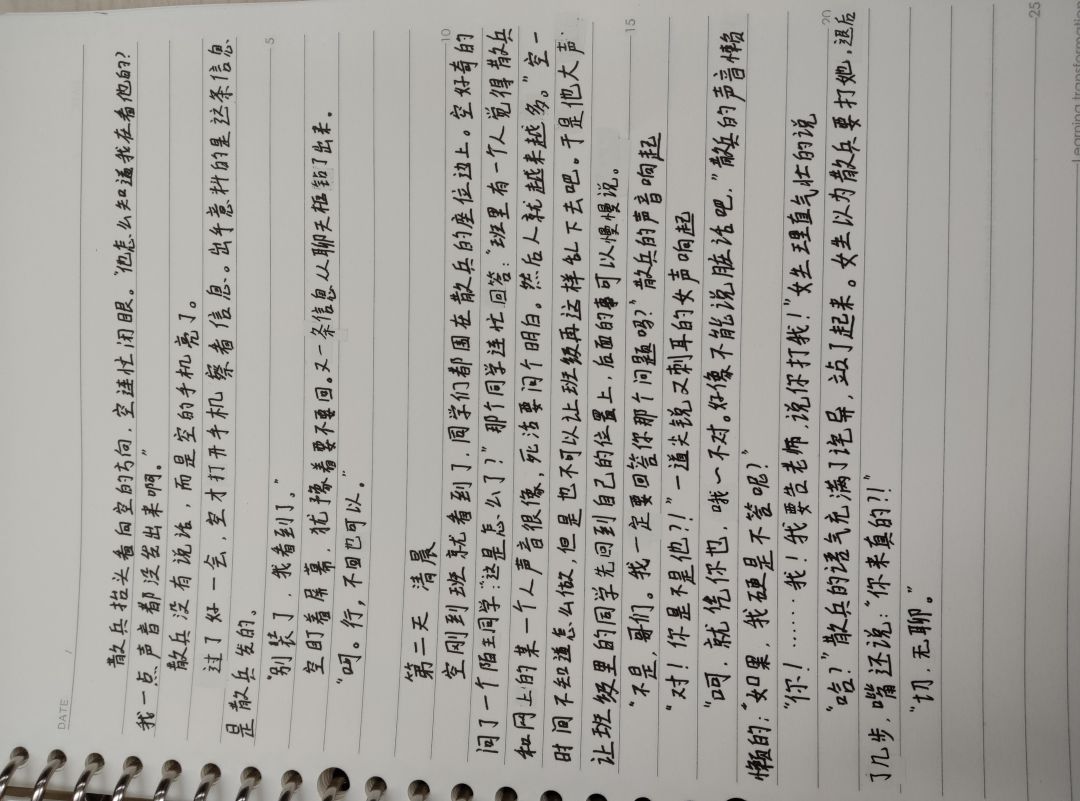 DATE
散兵抬头看向空的方向，空连忙闭眼。"他怎么知道我在看他的？
我一点声音都没发出来啊。"
散兵没有说话，而是空的手机亮了。
过了好一会，空才打开手机察看信息。出乎意料的是这条信息
是散兵发的。
5
"别装了，我看到了。"
空盯着屏幕，犹豫着要不要回。又一条信息从聊天框钻了出来。
"呵。行，不回也可以。"
第二天 清晨
空刚到班就看到了，同学们都围在散兵的座位边上。空好奇的
10
问了一个陌生同学："这是怎么了？"那个同学连忙回答："班里有一个人觉得散兵
和网上的某一个人声音很像，死活要问个明白。然后人就越来越多。"空一
时间不知道怎么做，但是也不可以让班级再这样乱下去吧。于是他大声
让班级里的同学先回到自己的位置上，后面的事可以慢慢说。
"不是，哥们。我一定要回答你那个问题吗？"散兵的声音响起
15
"对！你是不是他？！"一道尖锐又刺耳的女声响起
"呵，就凭你也，哦一不对。好像不能说脏话吧，"散兵的声音懒
懒的："如果，我硬是不答呢？"
"你！……我！我要告老师，说你打我！"女生理直气壮的说
"哈？"散兵的语气充满了诧异，站了起来。女生以为散兵要打她，退后
20
了几步，嘴还说："你来真的？！"
"切，无聊。"
25
Learning transformation